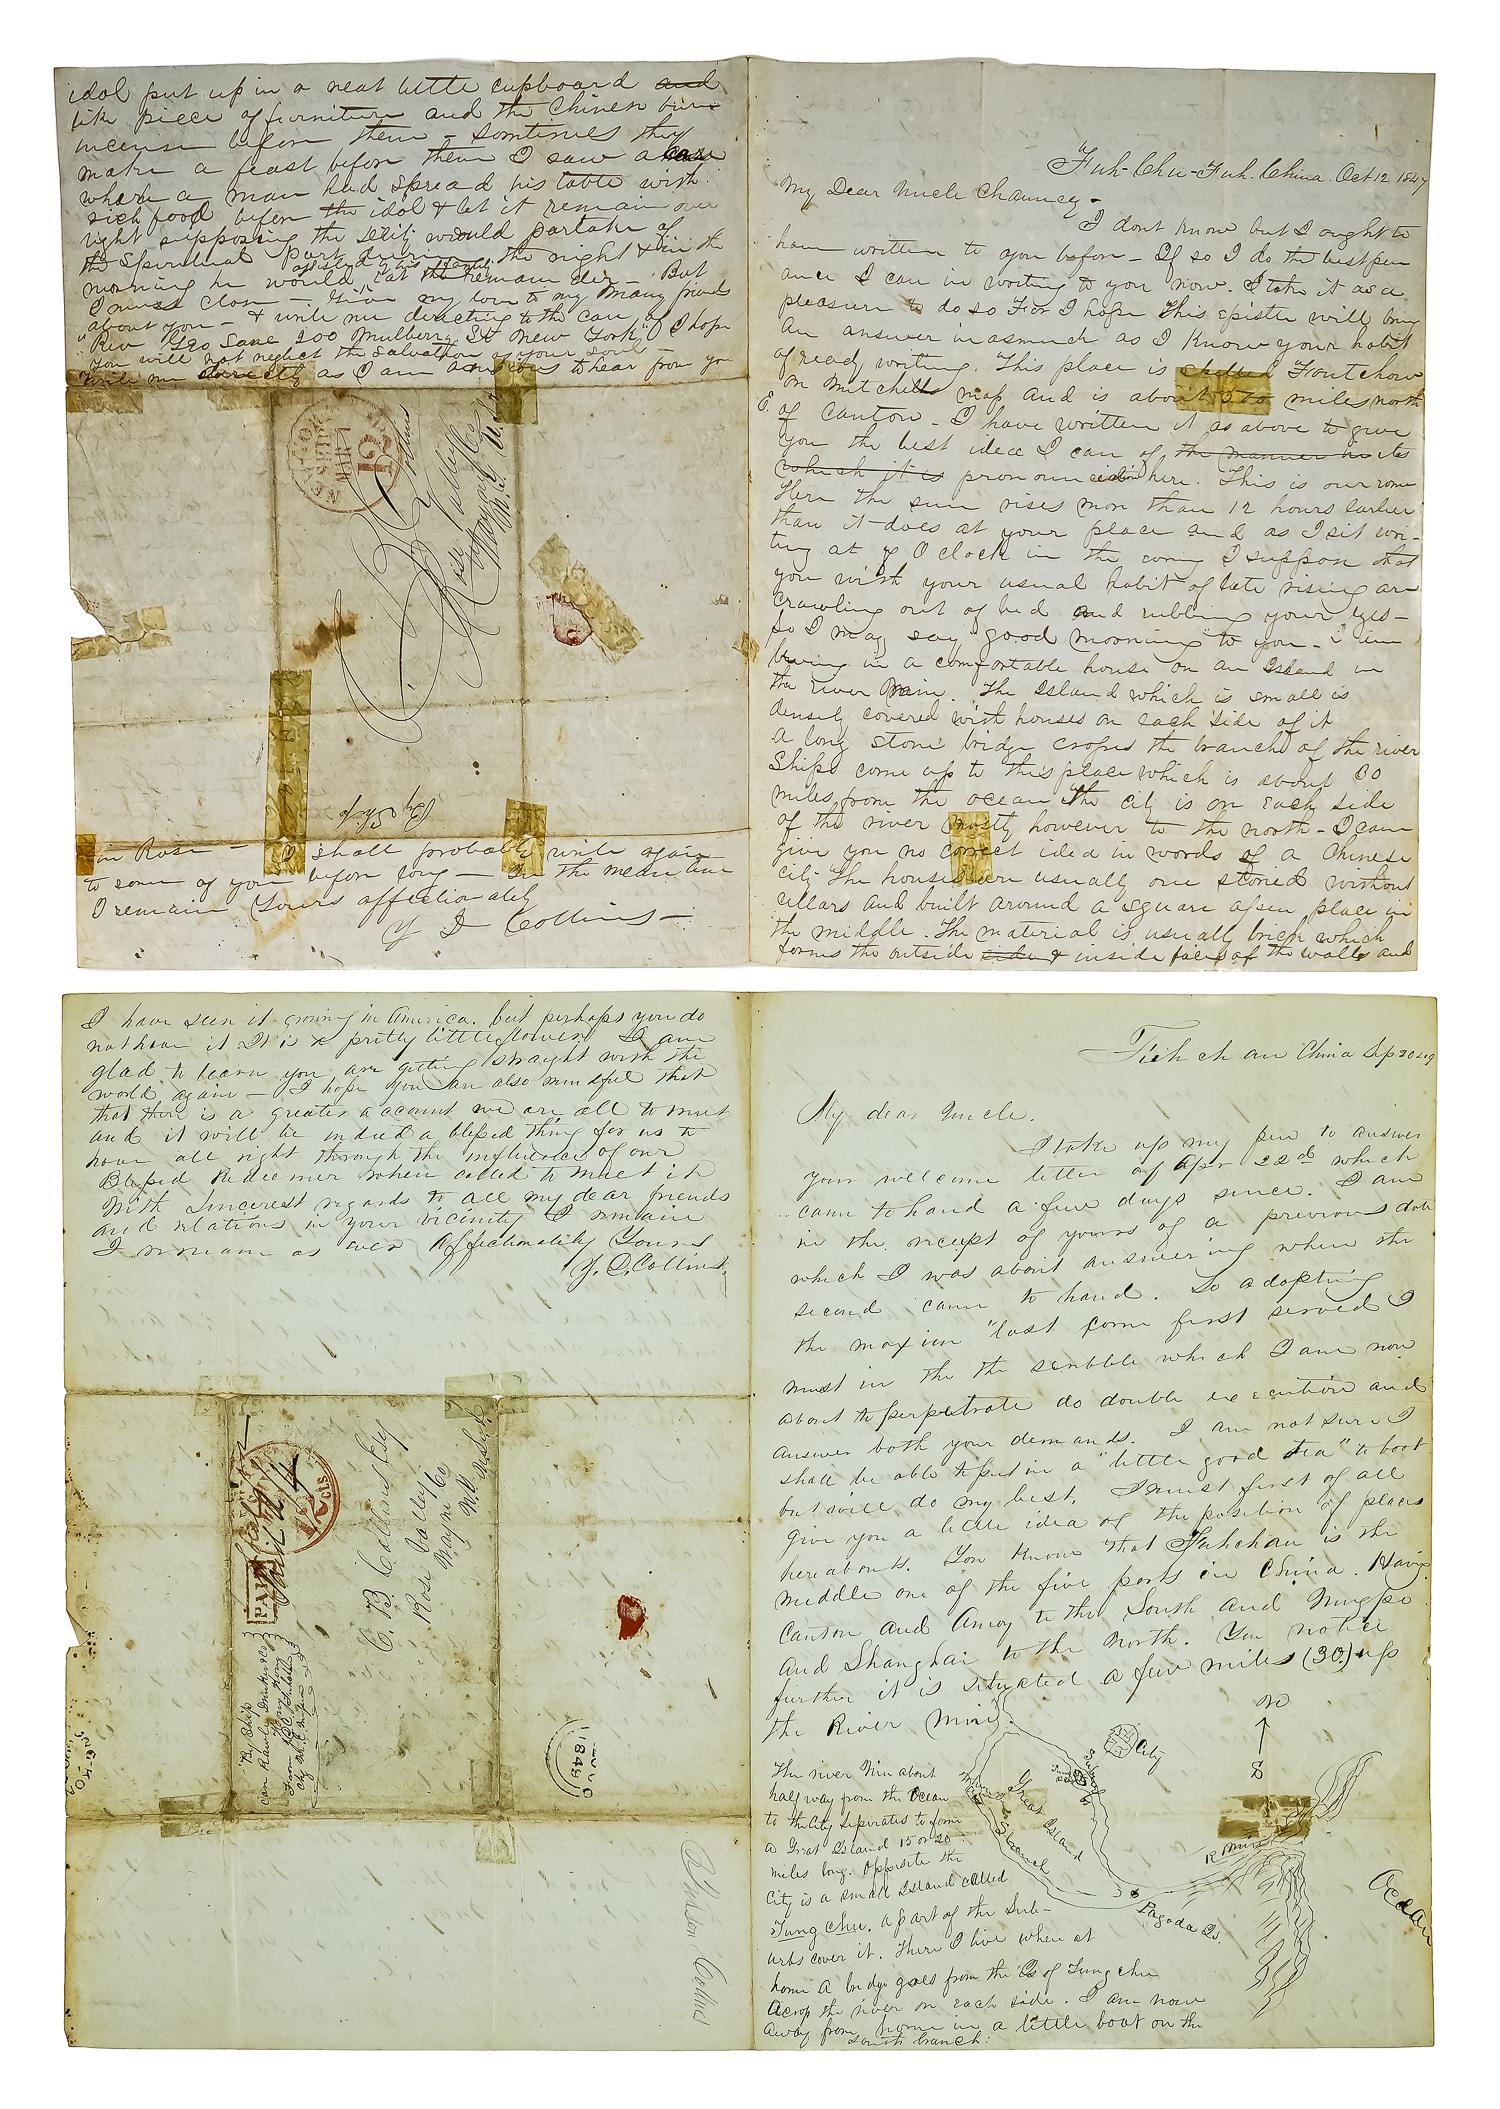 idol put up in a neat little cupboard and
like piece of furniture and the Chinese burn
incense before them - somtimes they
make a feast before them I saw a case
where a man had spread his table with
rich food before the idol & let it remain over
night supposing the deity would partake of
the spiritual part during the night & in the
morning he would eat the remainder - But
I must close - Give my love to my many friends
about you - & write me directing to the care of
"Rev Geo Lane 200 Mulberry St New York" I hope
you will not neglect the salvation of your soul -
write me directly as I am anxious to hear from you
12
C B Collins
Rose Valley
Wayne Co
N. Y. U.S.
By Ship
in Rose - I shall probably write again
to some of you before long - In the mean time
I remain Yours affectionately
J D Collins -
Fuh-Chu-Fuh. China. Oct 12 1847
My Dear Uncle Chauncey -
I dont know but I ought to
have written to you before - If so I do the best pen
ance I can in writing to you now. I take it as a
pleasure to do so For I hope This epistle will bring
an answer inasmuch as I know your habit
of ready writing. This place is spelled Foutchow
on Mitchells map and is about miles north
E. of Canton - I have written it as above to give
you the best idea I can of the manner in its
which it is pronounciation here. This is our home
Here the sun rises more than 12 hours earlier
than it does at your place and as I sit wri-
ting at 7 O clock in the eveing I suppose that
you with your usual habit of late rising are
crawling out of bed and rubbing your eyes -
So I may say good morning to you - I am
living in a comfortable house on an Island in
the river Min. The Island which is small is
densely covered with houses on each side of it
a long stone bridge crosses the branch of the river
Ships come up to this place which is about 30
miles from the ocean The city is on each side
of the river mostly however to the north - I can
give you no correct idea in words of a Chinese
city The houses are usually one storied without
cellars and built around a square open place in
the middle. The material is usually brick which
forms the outside side & inside faces of the walls and
I have seen it growing in America. but perhaps you do
not have it It is a pretty little flower. I am
glad to learn you are getting straight with the
world again - I hope you are also mindful that
that there is a greater account we are all to meet
and it will be indeed a blessed thing for us to
have all right through the influence of our
Blessed Redeemer when called to meet it
With sincerest regards to all my dear friends
and relations in your vicinity I remain
I remain as ever Affectionately Yours
J. D. Collins.
PAID
12 cts
C. B. Collins Esq
Rose Valley
Wayne Co
N.Y. U.S.A.
By Ship
1849
Alanson Collins
Fuh chau China Sep 20 49
My dear Uncle.
I take up my pen to answer
your welcome letter of Apr 22d which
came to hand a few days since. I am
in the receipt of yours of a previous date
which I was about answering when the
second came to hand. So adopting
the maxim "last come first served I
must in the the scribble which I am now
about to perpetrate do double execution and
answer both your demands. I am not sure I
shall be able to put in a "little good tea" to boot
but will do my best. I must first of all
give you a little idea of the position of places
hereabouts. You know that Fuhchau is the
middle one of the five ports in China. Having
Canton and Amoy to the South and Ningpo
and Shanghai to the North. You notice
further it is situated a few miles (30) up
the River Min.
N
S
City
Suburbs
Great Island
S. Branch
R Min
Pagoda Is.
Ocean
The river Min about
half way from the Ocean
to the City seperates to form
a Great Island 15 or 20
miles long. Opposite the
City is a small Island called
Tung Chu. a part of the Sub-
urbs cover it. There I live when at
home A bridge goes from the Is of Tung chu
Across the river on each side. I am now
away from home in a little boat on the
south branch: